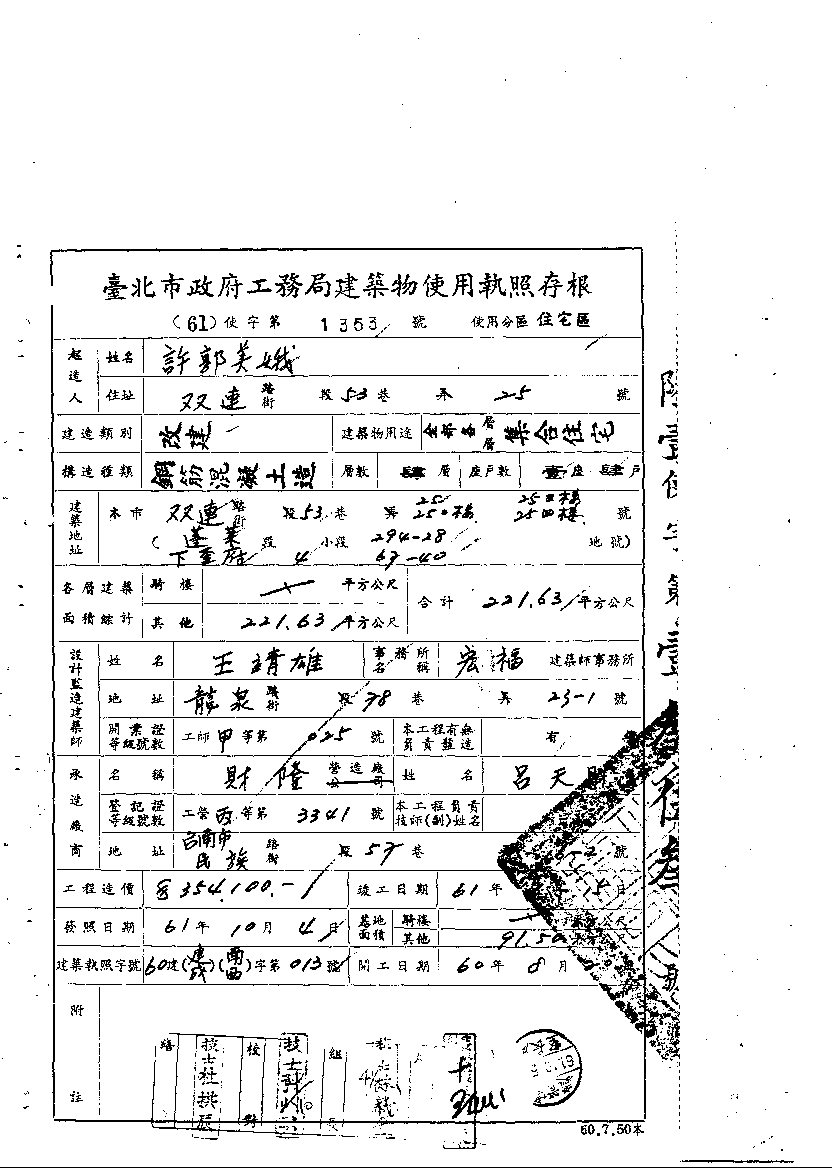 臺北市政府工務局建築物使用執照存根
(61)使字第 1353 號 使用分區 住宅區
起造人 姓名 許郭美娥
住址 双連 路街 段 53 巷 弄 25 號
建造類別 改建 建築物用途 全部各層層 集合住宅
構造種類 鋼筋混凝土造 層數 肆層 座戶數 壹座 肆戶
建築地址 本市 双連 路街 段 53 巷 弄 25 號
(蓬萊 下奎府 段 4 小段 294-28 67-40 地號)
各層建築面積綜計 騎樓 平方公尺 合計 221.63 平方公尺
其他 221.63 平方公尺
設計監造建築師 姓名 王靖雄 事務所名稱 宏福 建築師事務所
地址 龍泉 路街 段 78 巷 弄 23-1 號
開業證等級號數 工師甲等第 025 號 本工程有無負責監造 有
承造廠商 名稱 財隆 營造廠公司 姓名 呂天
登記證等級號數 工營丙等第 3341 號 本工程負責技師(副)姓名
地址 台南市民族 路街 段 57 巷 號
工程造價 354,100.- 竣工日期 61年 15日
發照日期 61年 10月 4日 基地面積 騎樓
其他 91.50
建築執照字號 60建(改)(南西)字第 013 號 開工日期 60年 8月
附註
繕 校對 組長
60.7.50本